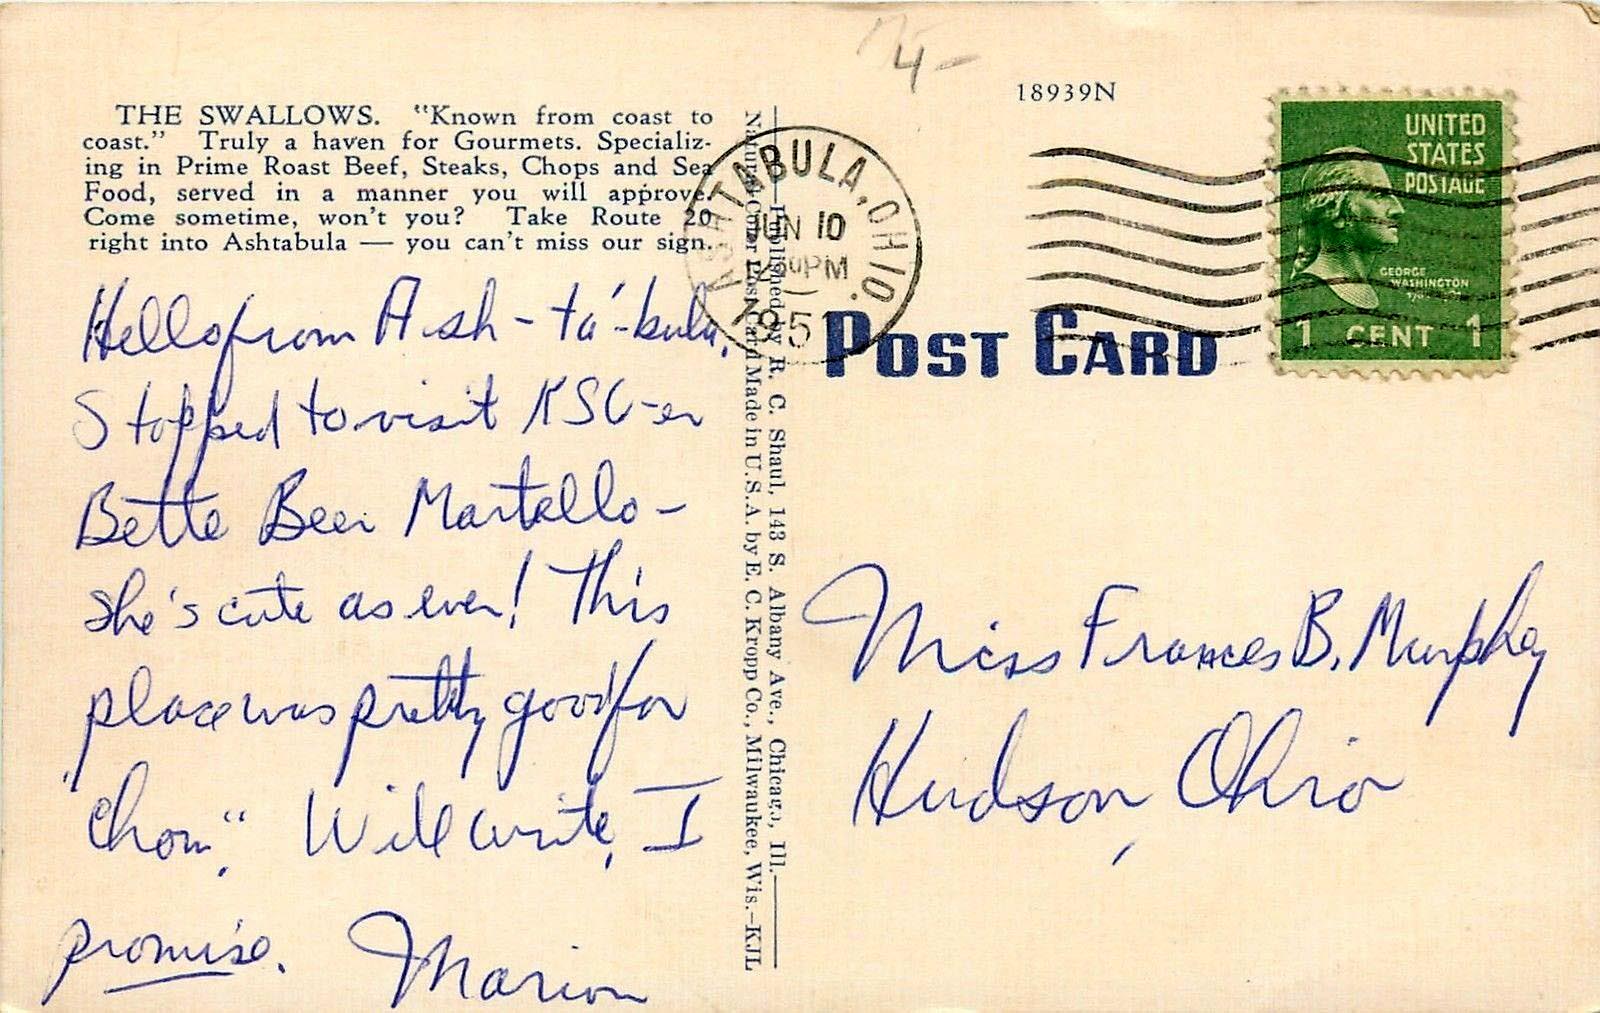 4-
18939N
THE SWALLOWS. "Known from coast to
coast." Truly a haven for Gourmets. Specializ-
ing in Prime Roast Beef, Steaks, Chops and Sea
Food, served in a manner you will approve.
Come sometime, won't you? Take Route 20
right into Ashtabula — you can't miss our sign.
Hello from Ash-ta'-bula,
Stopped to visit KSU-er
Bette Beer Martello-
she's cute as ever! This
place was pretty good for
"chow". Will write, I
promise. Marion
Published by R. C. Shaul, 143 S. Albany Ave., Chicago, Ill.
Natural Color Post Card Made in U.S.A. by E. C. Kropp Co., Milwaukee, Wis.-KJL
ASHTABULA, OHIO.
JUN 10
PM
1951
POST CARD
UNITED
STATES
POSTAGE
GEORGE
WASHINGTON
1 CENT 1
Miss Frances B. Murphey
Hudson, Ohio